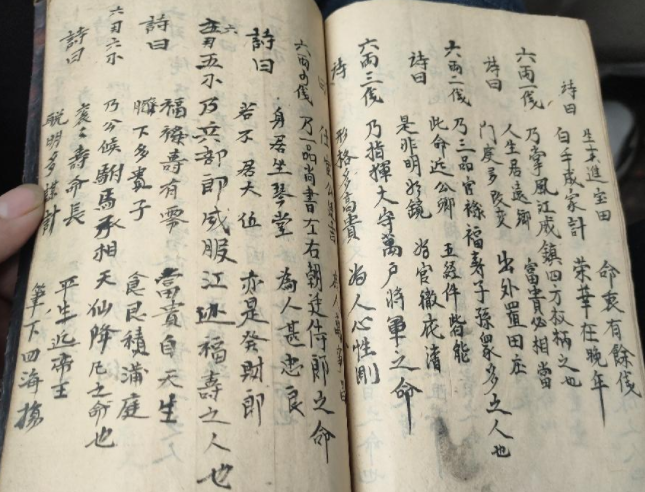 生来進宝田 命衷有餘伐
詩曰 白手成家計 荣華在晚年
六両一伐 乃掌風江威鎮四方权柄之也
人生君遠鄉 富貴必相当
詩曰 門庭多改变 出外置田庄
六両二伐 乃三品官禄福寿子孫衆多之人也
此命近公卿 五经件皆能
詩曰 是非明如鏡 为官徹底清
六両三伐 乃指揮大守萬户將軍之命
詩 形格多高貴 为人心性剛
六両四伐 乃一品尚書左右朝廷侍郎之命
身居坐琴堂 為人甚忠良
詩曰 若不居大位 亦是發財郎
六両五小 乃兵部郎威服江 福寿之人也
福禄壽有零 當貴自天生
詩曰 膝下多貴子 食艮積滿庭
六刃六小 乃公候駙馬承相天仙降凡之命也
衷之壽命長 平生近帝王
詩曰 聪明多謀計 筆下四海揚